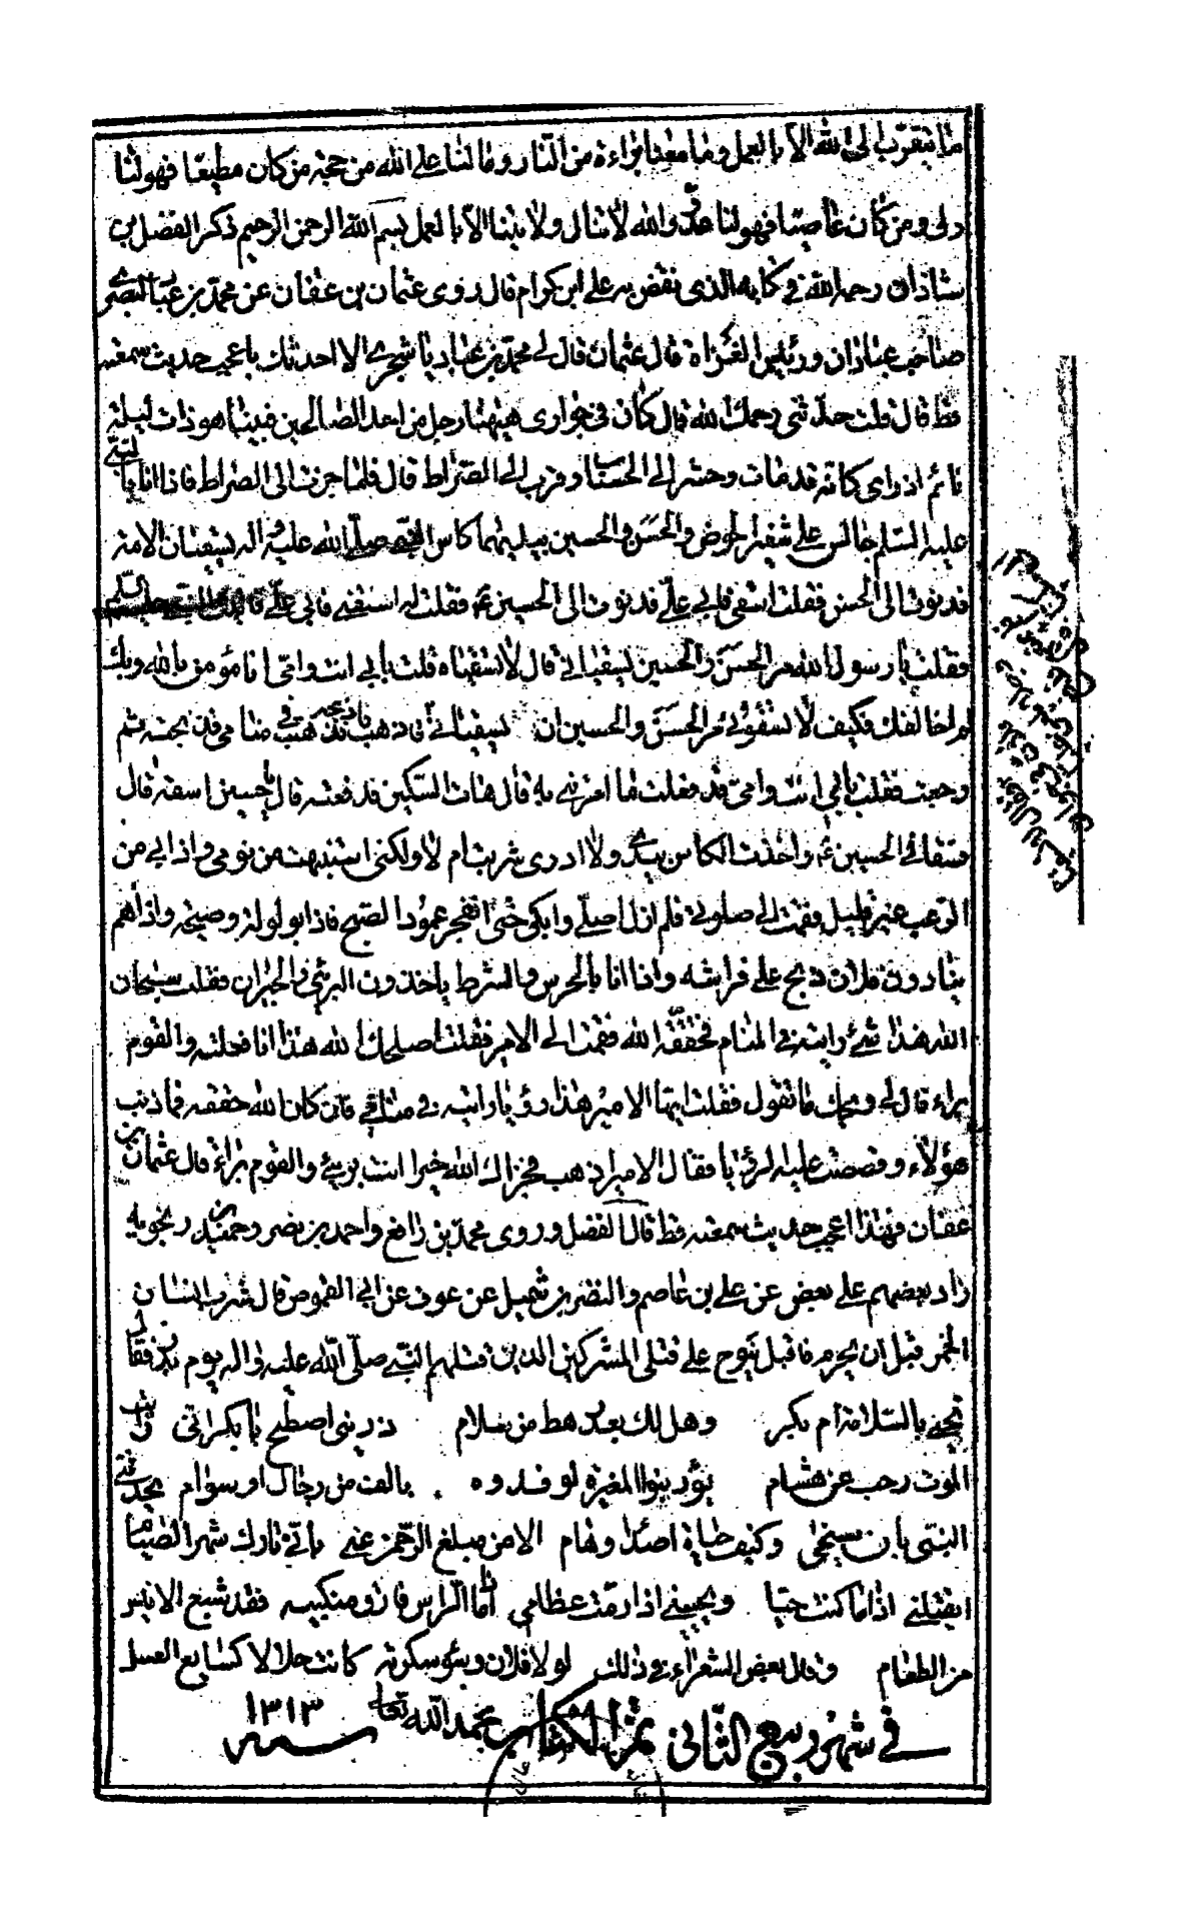 ما يتقرب الى الله الا بالعمل وما معنا براءة من النار وما لنا على الله من حجة من كان مطيعا فهو لنا
ولى ومن كان عاصيا فهو لنا عدو والله لا تنال ولايتنا الا بالعمل بسم الله الرحمن الرحيم ذكر الفضل بن
شاذان رحمه الله في كتابه الذى نقض به على ابن كرام قال روى عثمان بن عفان عن محمد بن عباد البصرى
صاحب عبادان ورئيس الغزاة قال عثمان قال لي محمد بن عباد يا شجرى الا احدثك باعجب حديث سمعته
قط قال قلت حدثنى رحمك الله قال كان في جوارى هيهنا رجل من احد الصالحين فبينا هو ذات ليلة
نائم اذ راى كانه قد مات وحشر الى الحساب وقرب الى الصراط قال فلما جزت الى الصراط فاذا انا بالنبي
عليه السلم جالس على شفير الحوض والحسن والحسين بيديهما كاس النبي صلى الله عليه واله يسقيان الامة
فدنوت الى الحسن فقلت اسقني فابى علي فدنوت الى الحسين ع فقلت له اسقني فابى علي فاتيت النبي عليه السلم
فقلت يا رسول الله مر الحسن والحسين يسقياني قال لا تسقياه قلت بابي انت وامي انا مؤمن بالله وبك
لم اخالفك فكيف لا تسقوني مر الحسن والحسين ان يسقياني قال
وجيت فقلت بابي انت وامي قد فعلت ما امرتني به قال هات السكين فدفعته قال يا حسين اسقه قال
فسقاني الحسين ع واخذت الكاس بيدي ولا ادرى شربت ام لا ولكني استنبهت من نومي واذا بي من
الرعب غير قليل فقمت الى صلوتي فلم ازل اصلي وابكي حتى انفجر عمود الصبح فاذا بولولة وصيحة واذا هم
ينادون فلان ذبح على فراشه واذا انا بالحرس والشرط ياخذون البرئ والجيران فقلت سبحان
الله هذا شئ رايته في المنام فحققه الله فقمت الى الامير فقلت اصلحك الله هذا انا فعلته والقوم
براء قال لي ويحك ما تقول فقلت ايها الامير هذا رؤيا رايته في منامي فان كان الله حققه فما ذنب
هؤلاء وقصصت عليه الرؤيا فقال الامير اذهب فجزاك الله خيرا انت برئ والقوم براء قال عثمان بن
عفان فهذا اعجب حديث سمعته قط قال الفضل وروى محمد بن رافع واحمد بن نصر وحميد بن زنجويه
زاد بعضهم على بعض عن علي بن عاصم والنضر بن شميل عن عوف عن ابي القموص قال شرب انسان
الخمر قبل ان يحرم فاقبل ينوح على قتلى المشركين الذين قتلهم النبي صلى الله عليه واله يوم بدر فقال
تحيى بالسلامة ام بكر وهل لك بعد رهط من سلام ذريني اصطبح يا بكر اني رايت
الموت رحب عن هشام يؤد بنوا المغيرة لو فدوه بالف من رجال او سوام يحدثني
النبي بان سنحيى وكيف حياة اصداء وهام الا من مبلغ الرحمن عني باني تارك شهر الصيام
ايقتلني اذا ما كنت حيا ويحييني اذا رمت عظامي اما الراس فارق منكبيه فقد شبع الانيس
من الطعام وقال بعض الشعراء في ذلك لولا فلان وسؤ سكرته كانت حلالا كسايغ العسل
في شهر ربيع الثاني تم الكتاب بحمد الله تعالى ١٣١٣